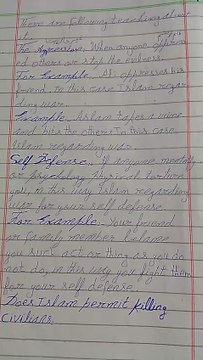 There are following teaching about
it.
The Aggression. When anyone oppress
ed others or stop the
For Example. Ali oppresses his
friend, in this case Islam regar
ding war.
Example. Aslam takes a
and hits the others In this case
Islam regarding war.
Self Defense. If anyone mentally
or psychology physical torture
you, in this way Islam regarding
war for your self defense.
For Example. Your friend
or family member blame
you such act or thing as you do
not do, in this way you fight them
for your self defense.
Does Islam permit killing
civilians